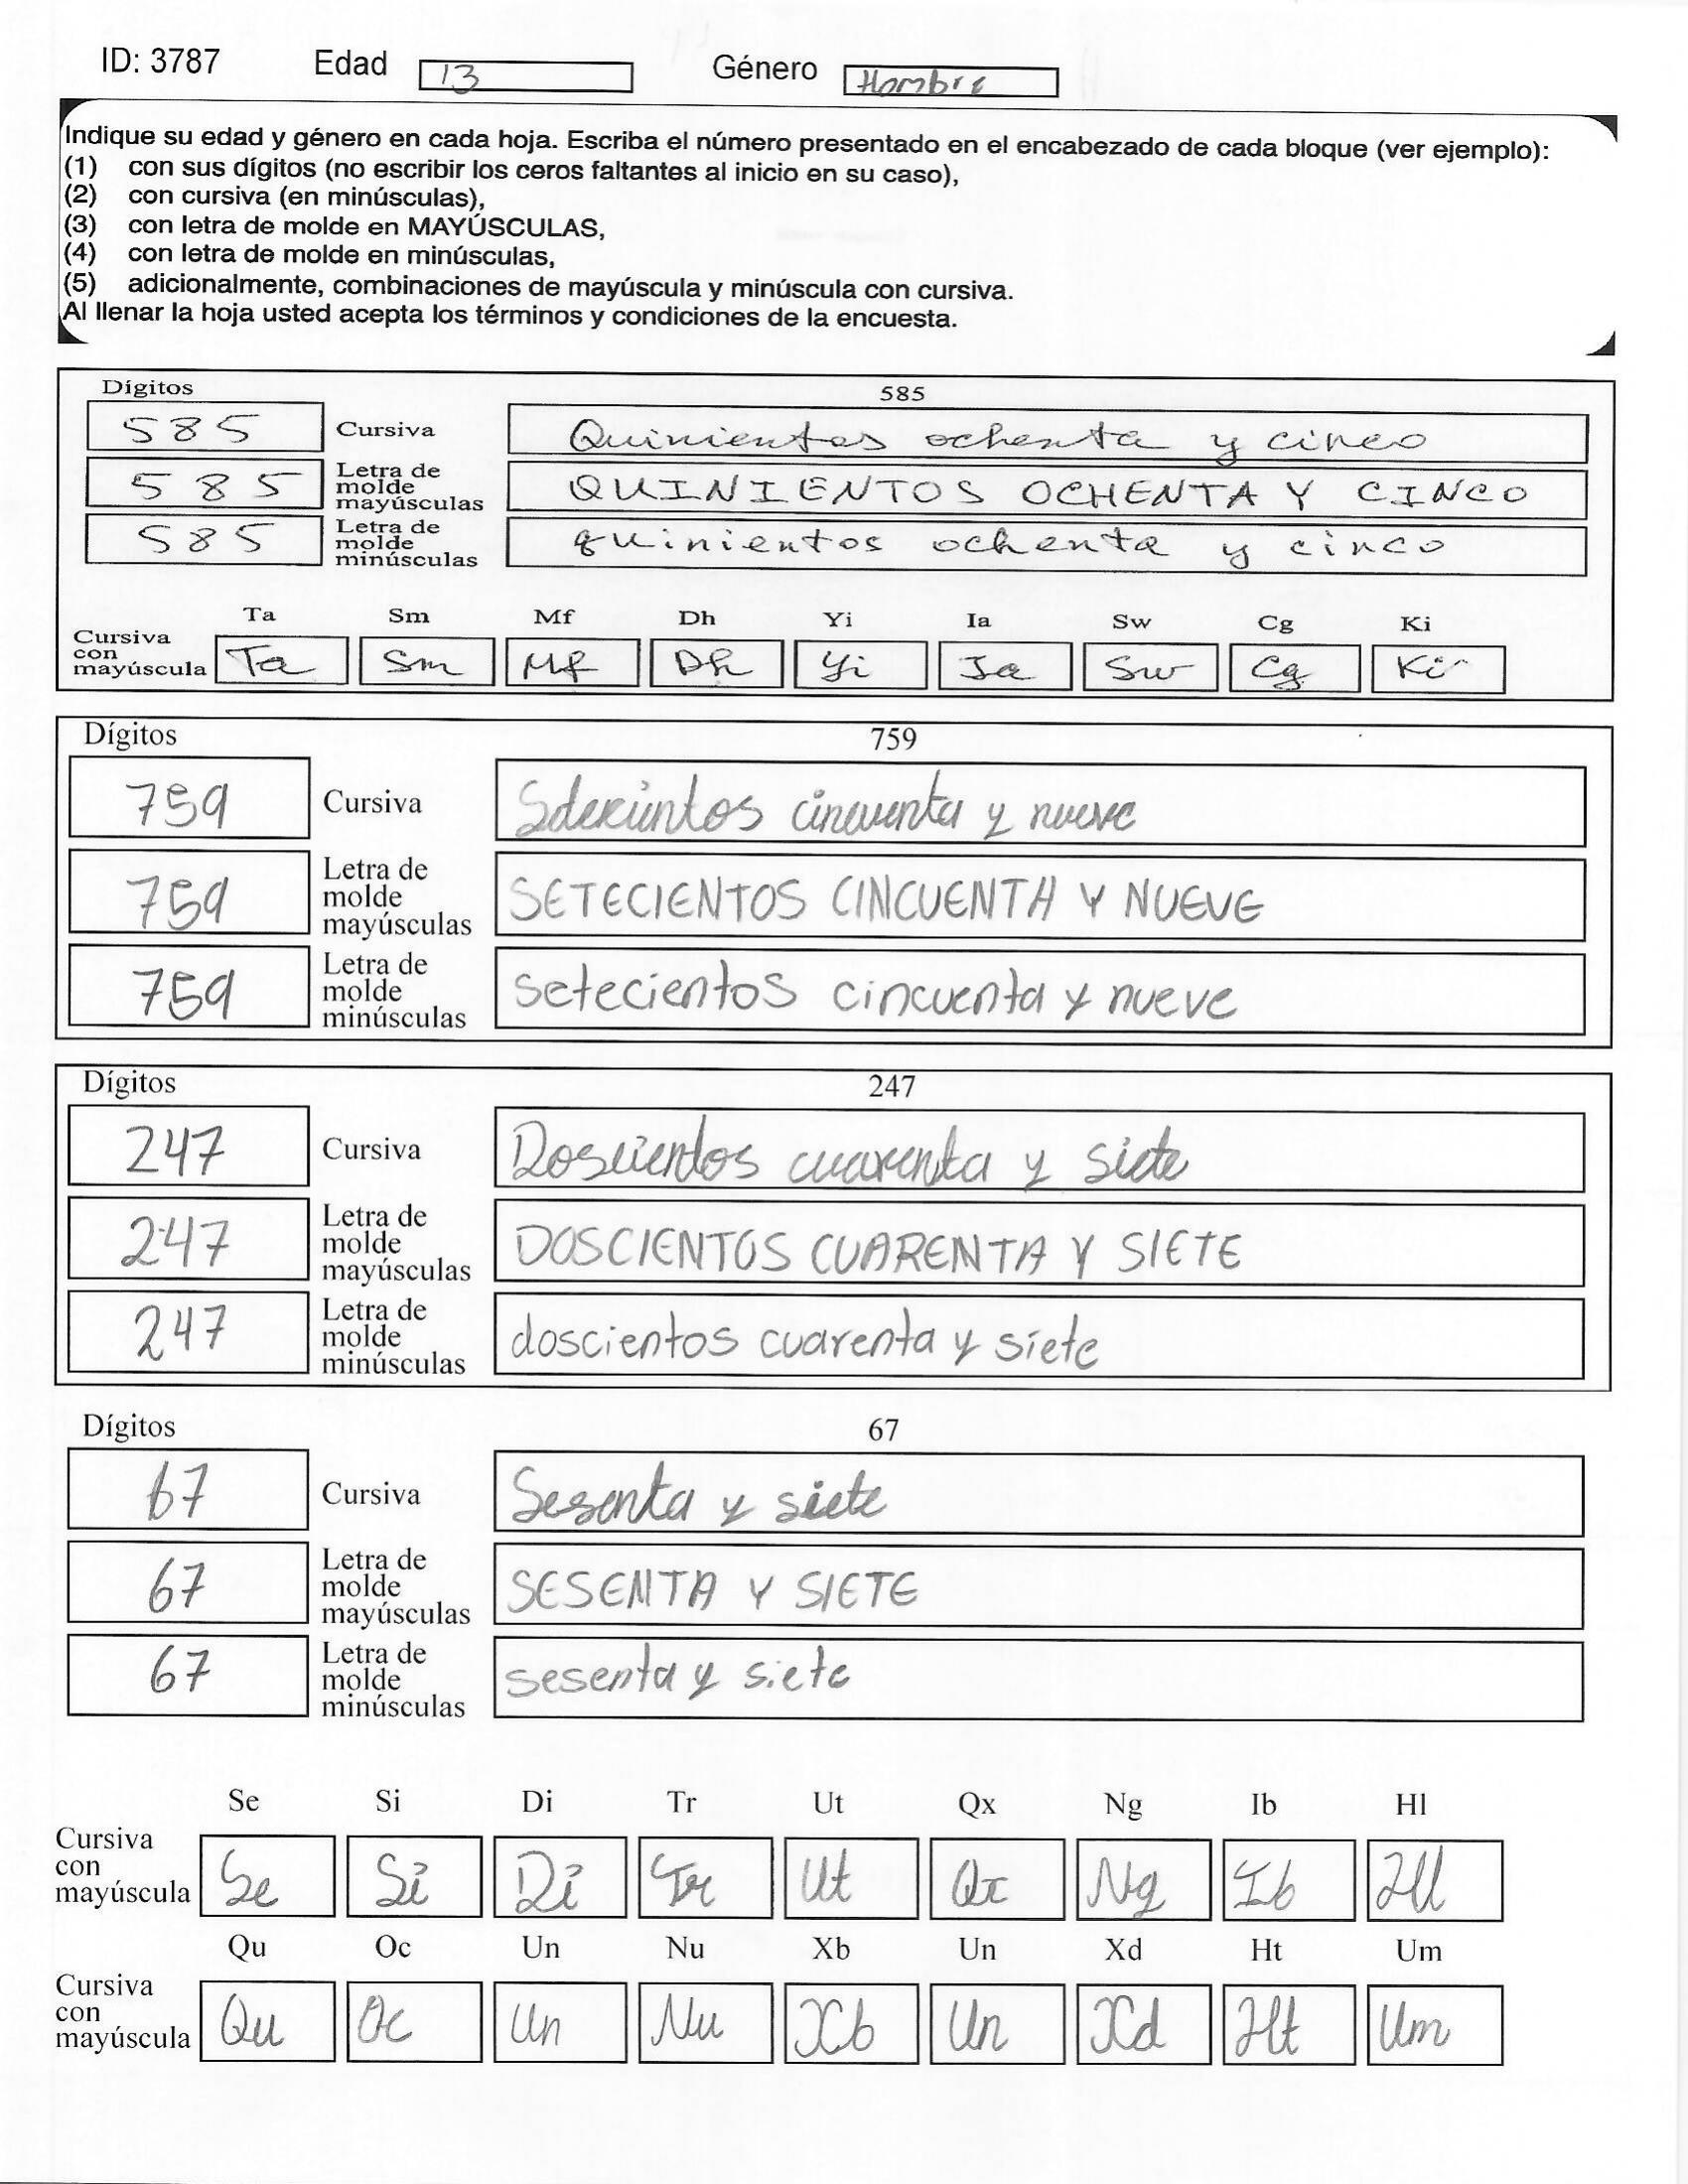 ID: 3787 Edad 13 Género Hombre
Indique su edad y género en cada hoja. Escriba el número presentado en el encabezado de cada bloque (ver ejemplo):
(1) con sus dígitos (no escribir los ceros faltantes al inicio en su caso),
(2) con cursiva (en minúsculas),
(3) con letra de molde en MAYÚSCULAS,
(4) con letra de molde en minúsculas,
(5) adicionalmente, combinaciones de mayúscula y minúscula con cursiva.
Al llenar la hoja usted acepta los términos y condiciones de la encuesta.
Dígitos 585
585 Cursiva Quinientos ochenta y cinco
585 Letra de molde mayúsculas QUINIENTOS OCHENTA Y CINCO
585 Letra de molde minúsculas quinientos ochenta y cinco
Ta Sm Mf Dh Yi Ia Sw Cg Ki
Cursiva con mayúscula Ta Sm Mf Dh Yi Ia Sw Cg Ki
Dígitos 759
759 Cursiva Setecientos cincuenta y nueve
759 Letra de molde mayúsculas SETECIENTOS CINCUENTA Y NUEVE
759 Letra de molde minúsculas setecientos cincuenta y nueve
Dígitos 247
247 Cursiva Doscientos cuarenta y siete
247 Letra de molde mayúsculas DOSCIENTOS CUARENTA Y SIETE
247 Letra de molde minúsculas doscientos cuarenta y siete
Dígitos 67
67 Cursiva Sesenta y siete
67 Letra de molde mayúsculas SESENTA Y SIETE
67 Letra de molde minúsculas sesenta y siete
Se Si Di Tr Ut Qx Ng Ib Hl
Cursiva con mayúscula Se Si Di Tr Ut Qx Ng Ib Hl
Qu Oc Un Nu Xb Un Xd Ht Um
Cursiva con mayúscula Qu Oc Un Nu Xb Un Xd Ht Um